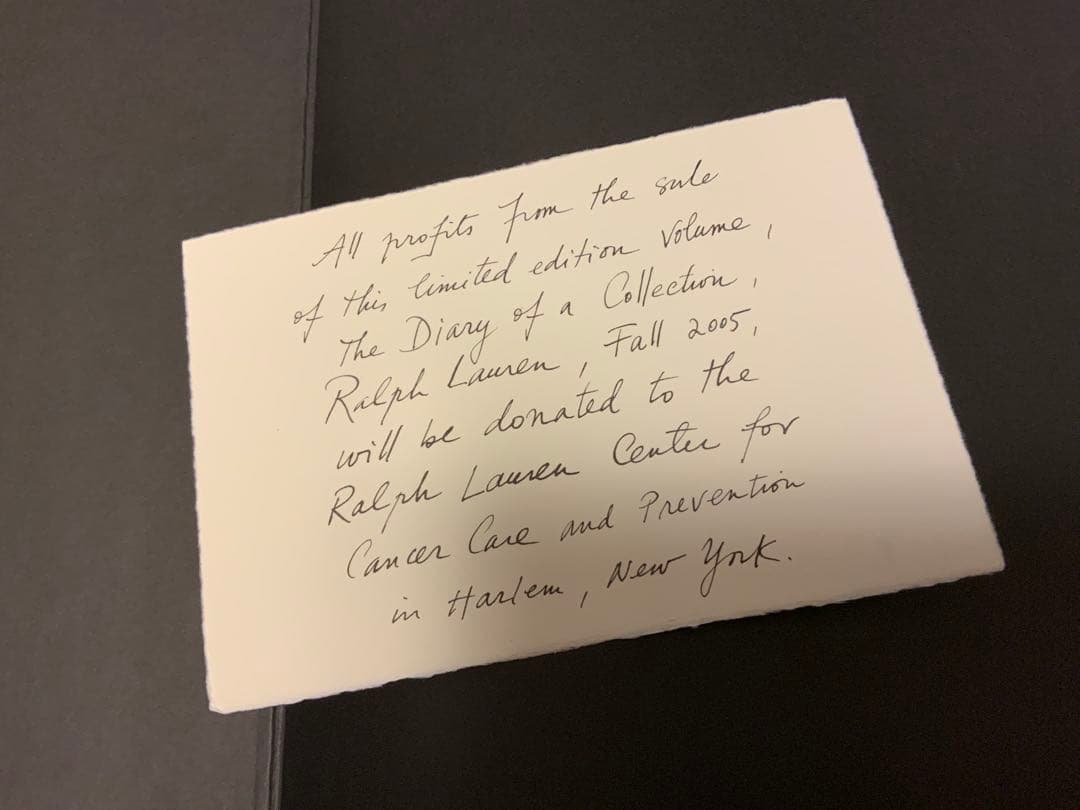 All profits from the sale
of this limited edition volume,
The Diary of a Collection,
Ralph Lauren, Fall 2005,
will be donated to the
Ralph Lauren Center for
Cancer Care and Prevention
in Harlem, New York.